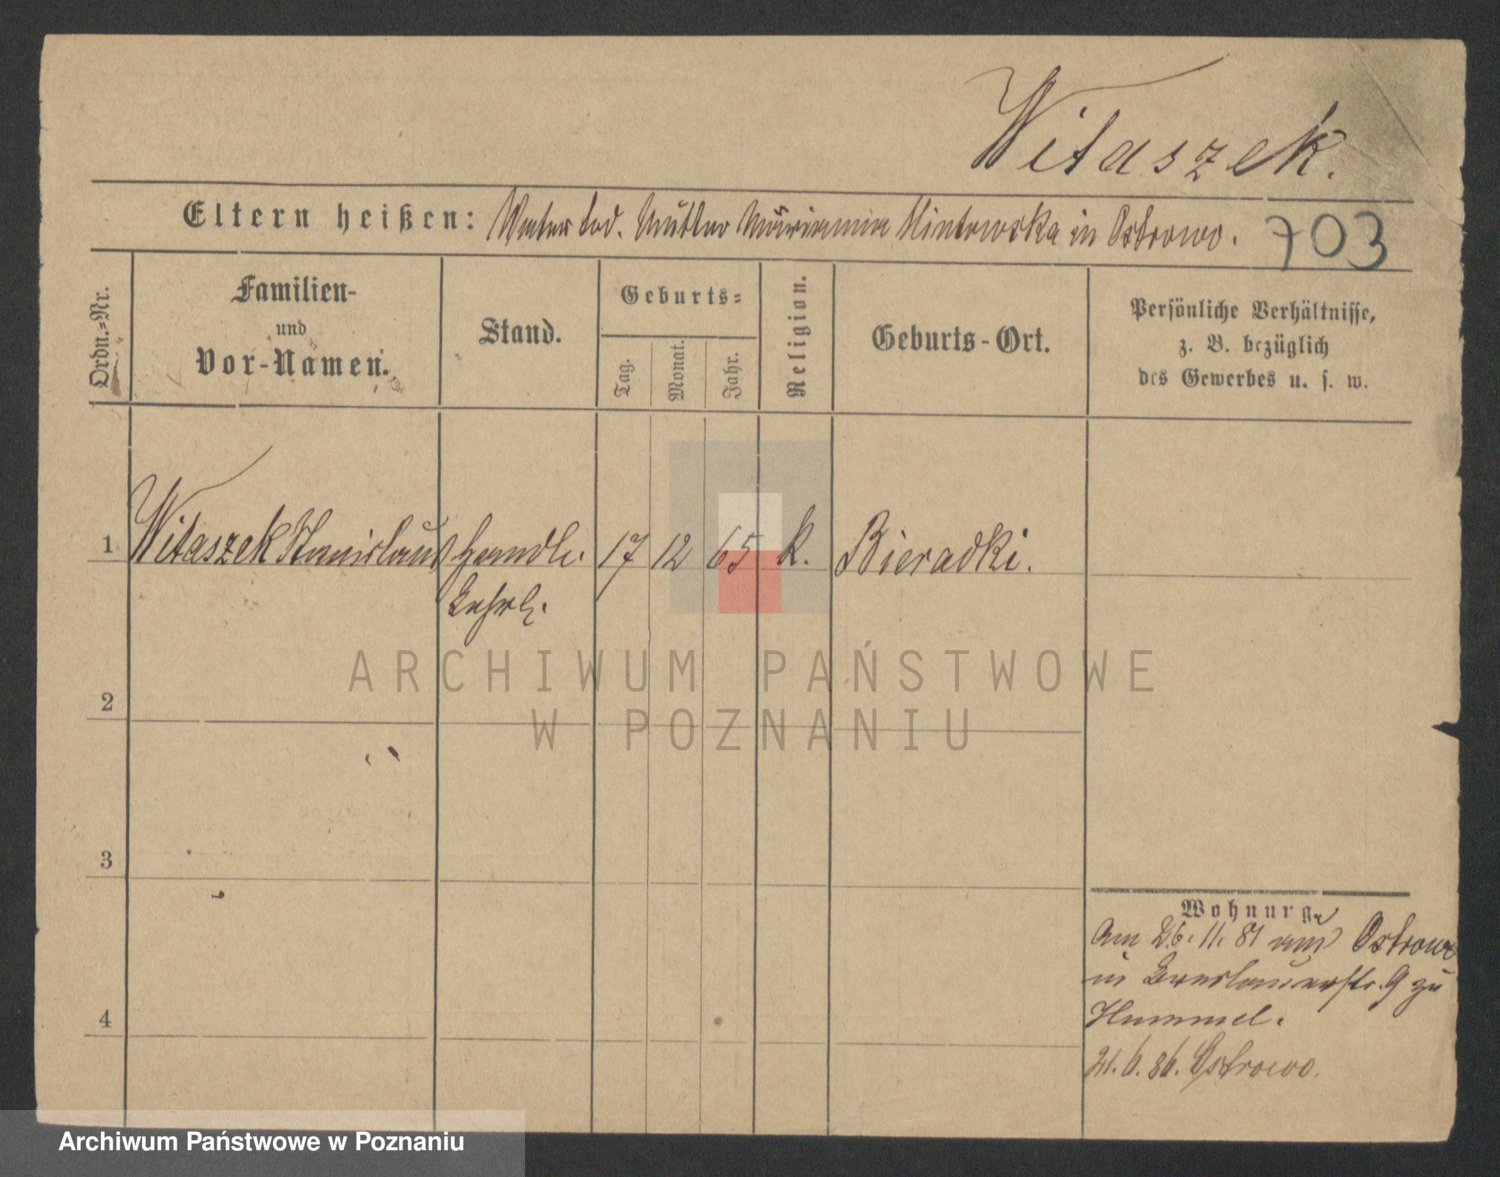 Witaszek.
Eltern heißen: Vater tod. Mutter Marianna in Ostrowo. 703
Ordn.-Nr.
Familien-
und
Vor-Namen.
Stand.
Geburts-
Tag.
Monat.
Jahr.
Religion.
Geburts-Ort.
Persönliche Verhältnisse,
z. B. bezüglich
des Gewerbes u. s. w.
1 Witaszek Stanislaus Handl. 17 12 65 k. Bieradki.
Lehrl.
ARCHIWUM PAŃSTWOWE
W POZNANIU
2
3
4
Wohnung
Am 26. 11. 81 aus Ostrowo
in Breslauerstr. 9 zu
Hummel.
21. 6. 86. Ostrowo.
Archiwum Państwowe w Poznaniu